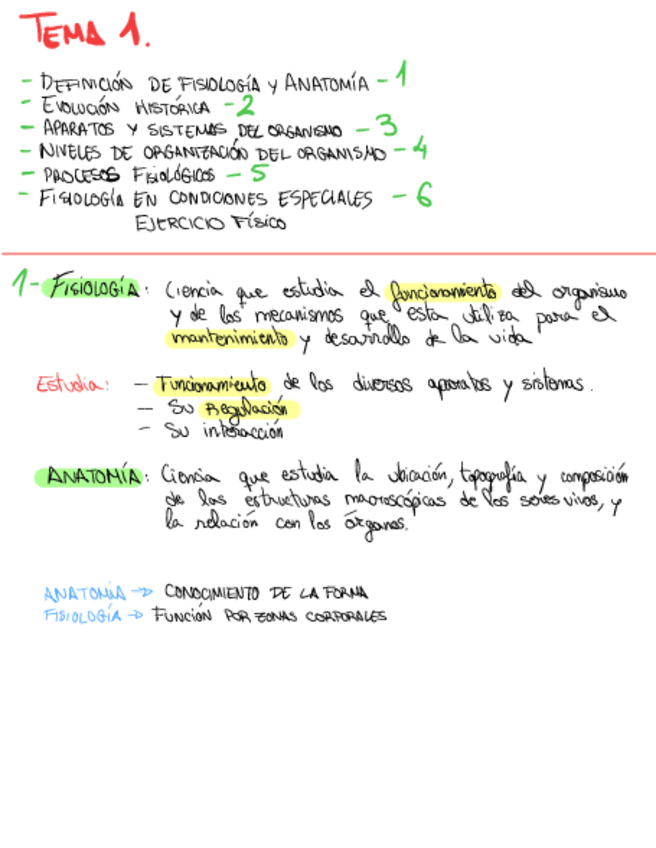 TEMA 1.
- DEFINICIÓN DE FISIOLOGÍA Y ANATOMÍA - 1
- EVOLUCIÓN HISTÓRICA - 2
- APARATOS Y SISTEMAS DEL ORGANISMO - 3
- NIVELES DE ORGANIZACIÓN DEL ORGANISMO - 4
- PROCESOS FISIOLÓGICOS - 5
- FISIOLOGÍA EN CONDICIONES ESPECIALES - 6
EJERCICIO FÍSICO
1- FISIOLOGÍA: Ciencia que estudia el funcionamiento del organismo
y de los mecanismos que esta utiliza para el
mantenimiento y desarrollo de la vida
Estudia: - Funcionamiento de los diversos aparatos y sistemas.
- Su Regulación
- Su interacción
ANATOMÍA: Ciencia que estudia la ubicación, topografía y composición
de las estructuras macroscópicas de los seres vivos, y
la relación con los órganos.
ANATOMÍA → CONOCIMIENTO DE LA FORMA
FISIOLOGÍA → FUNCIÓN POR ZONAS CORPORALES